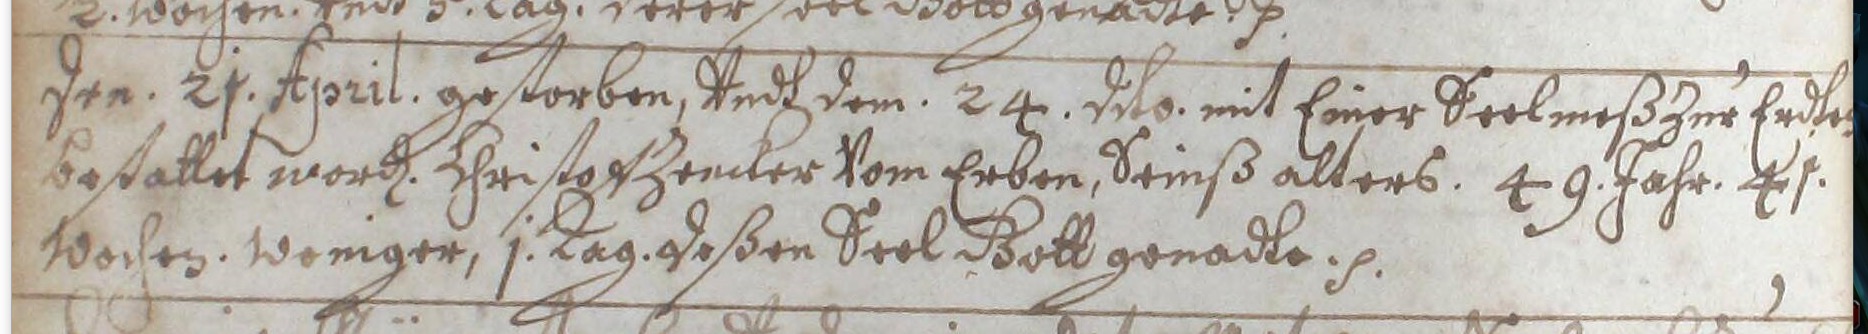 2. Wochen. Undt 5. Tag. derer Seel Gott genadte. p.
Den. 21. April. gestorben, Undt dem. 24. dito. mit Einer Seelmeß Zur Erdte
bestattet word. Christof Zencker Vom Erben, Seinß alters. 49. Jahr. 41.
Wochen. Weniger, 1. Tag. deßen Seel Gott genadte. p.